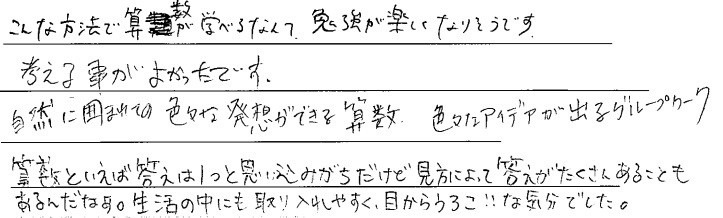 こんな方法で算数が学べるなんて、勉強が楽しくなりそうです。
考える事がよかったです。
自然に囲まれての色々な発想ができる算数、色々なアイデアが出るグループワーク
算数といえば答えは1つと思い込みがちだけど見方によって答えがたくさんあることも
あるんだなぁ。生活の中にも取り入れやすく、目からうろこ!!な気分でした。